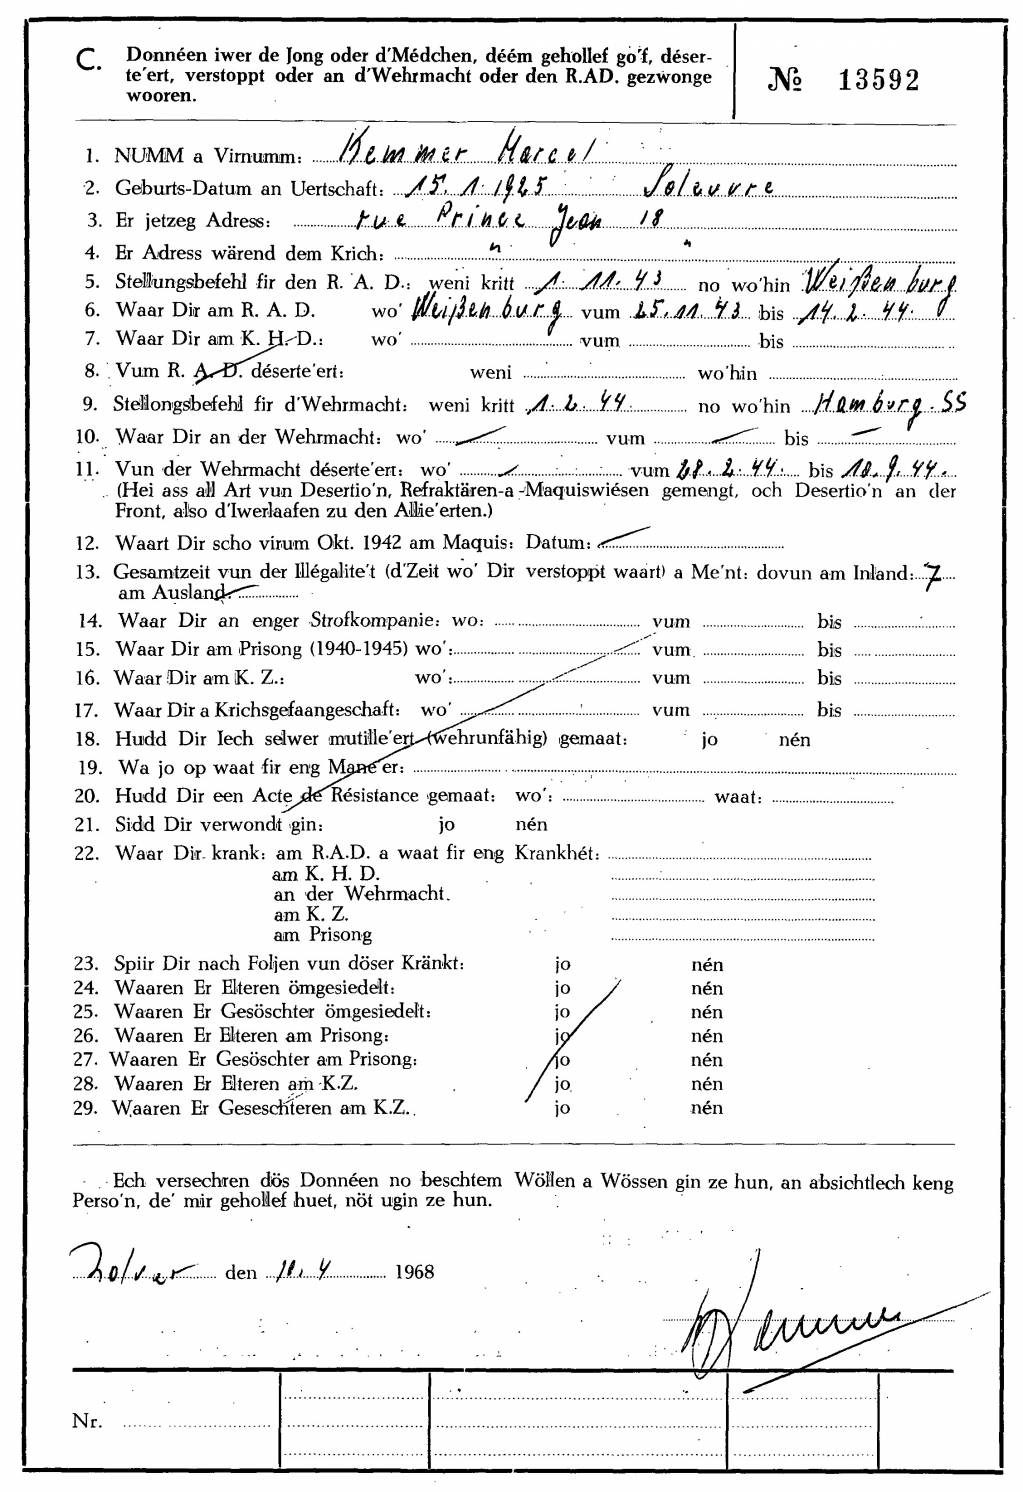 C. Donnéen iwer de Jong oder d'Médchen, déém gehollef go'f, déser-
te'ert, verstoppt oder an d'Wehrmacht oder den R.AD. gezwonge
wooren.
№ 13592
1. NUMM a Virnumm: Kemmer Marcel
2. Geburts-Datum an Uertschaft: 15. 1. 1925 Soleuvre
3. Er jetzeg Adress: rue Prince Jean 18
4. Er Adress wärend dem Krich: " "
5. Stellungsbefehl fir den R. A. D.: weni kritt 1. 11. 43 no wo'hin Weißenburg
6. Waar Dir am R. A. D. wo' Weißenburg vum 25. 11. 43 bis 14. 2. 44.
7. Waar Dir am K. H. D.: wo' vum bis
8. Vum R. A. D. déserte'ert: weni wo'hin
9. Stellongsbefehl fir d'Wehrmacht: weni kritt 1. 2. 44. no wo'hin Hamburg. SS
10. Waar Dir an der Wehrmacht: wo' vum bis
11. Vun der Wehrmacht déserte'ert: wo' vum 28. 2. 44. bis 10. 9. 44.
(Hei ass all Art vun Desertio'n, Refraktären-a-Maquiswiésen gemengt, och Desertio'n an der
Front, also d'Iwerlaafen zu den Allie'erten.)
12. Waart Dir scho virum Okt. 1942 am Maquis: Datum:
13. Gesamtzeit vun der Illégalite't (d'Zeit wo' Dir verstoppt waart) a Me'nt: dovun am Inland: 7
am Ausland:
14. Waar Dir an enger Strofkompanie: wo: vum bis
15. Waar Dir am Prisong (1940-1945) wo': vum bis
16. Waar Dir am K. Z.: wo': vum bis
17. Waar Dir a Krichsgefaangeschaft: wo' vum bis
18. Hudd Dir Iech selwer mutille'ert (wehrunfähig) gemaat: jo nén
19. Wa jo op waat fir eng Mane'er:
20. Hudd Dir een Acte de Résistance gemaat: wo': waat:
21. Sidd Dir verwondt gin: jo nén
22. Waar Dir krank: am R.A.D. a waat fir eng Krankhét:
am K. H. D.
an der Wehrmacht.
am K. Z.
am Prisong
23. Spiir Dir nach Foljen vun döser Kränkt: jo nén
24. Waaren Er Elteren ömgesiedelt: jo nén
25. Waaren Er Gesöschter ömgesiedelt: jo nén
26. Waaren Er Elteren am Prisong: jo nén
27. Waaren Er Gesöschter am Prisong: jo nén
28. Waaren Er Elteren am K.Z. jo nén
29. Waaren Er Geseschteren am K.Z. jo nén
Ech versechren dös Donnéen no beschtem Wöllen a Wössen gin ze hun, an absichtlech keng
Perso'n, de' mir gehollef huet, nöt ugin ze hun.
Zolver den 10. 4 1968
Kemmer
Nr.